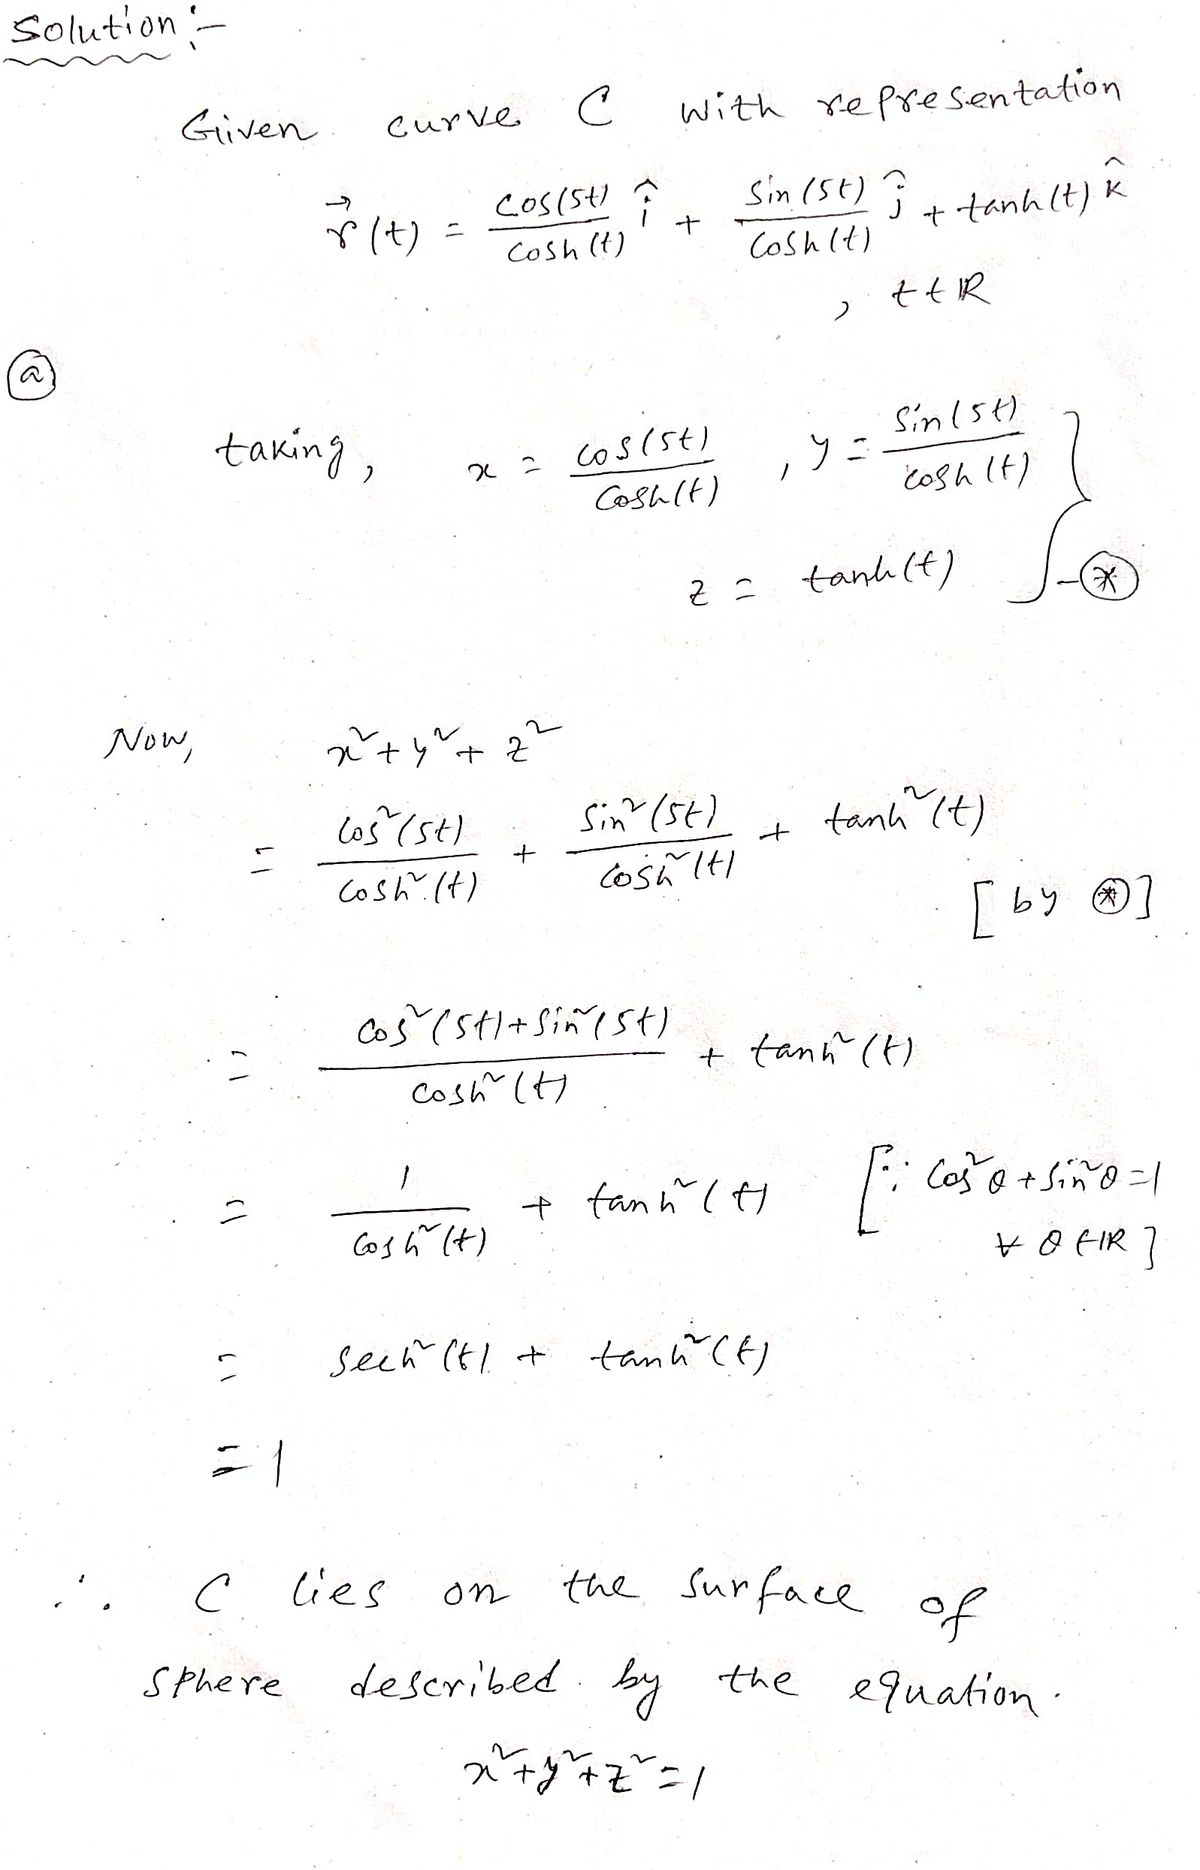 Solution :-
Given curve C with representation
r⃗(t) = cos(5t)/cosh(t) î + sin(5t)/cosh(t) ĵ + tanh(t) k̂
, t ∈ ℝ
(a)
taking, x = cos(5t)/cosh(t) , y = sin(5t)/cosh(t)
z = tanh(t) } - (*)
Now, x² + y² + z²
= cos²(5t)/cosh²(t) + sin²(5t)/cosh²(t) + tanh²(t)
[by (*)]
= cos²(5t)+sin²(5t)/cosh²(t) + tanh²(t)
= 1/cosh²(t) + tanh²(t) [∵ cos²θ + sin²θ = 1
∀ θ ∈ ℝ]
= sech²(t) + tanh²(t)
= 1
∴ C lies on the surface of
sphere described by the equation.
x²+y²+z²=1